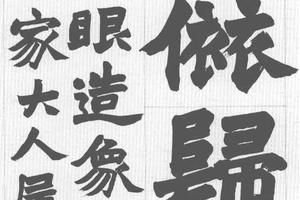 依歸
眼造象
家大人